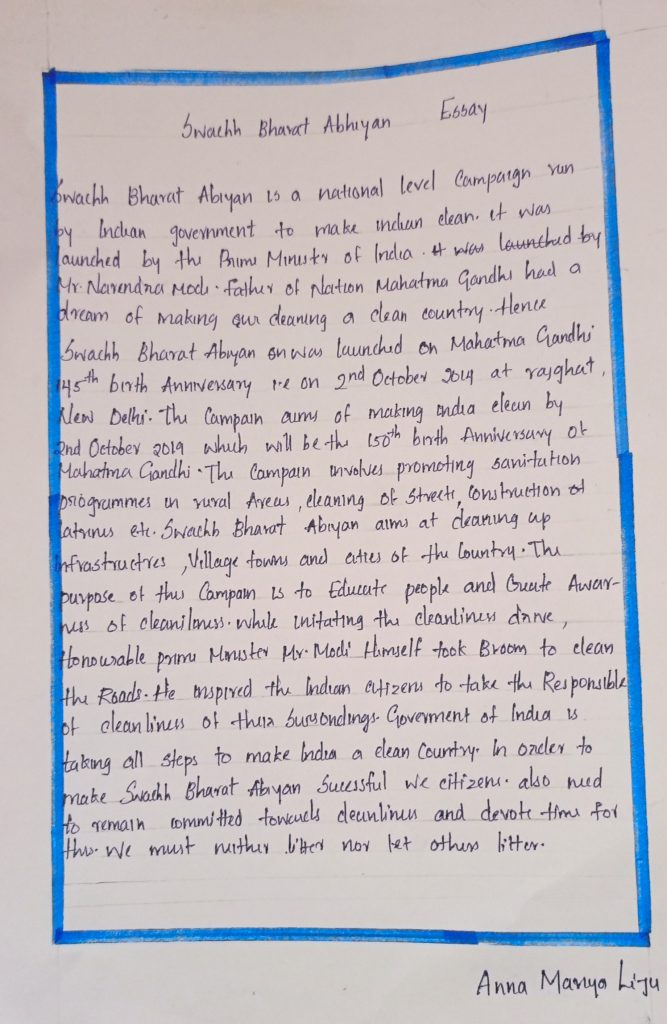 Swachh Bharat Abhiyan Essay
Swachh Bharat Abiyan is a national level Campaign run
by Indian government to make indian clean. it was
launched by the Prime Minister of India. it was launched by
Mr. Narendra Modi. father of Nation Mahatma Gandhi had a
dream of making our cleaning a clean country. Hence
Swachh Bharat Abiyan on was launched on Mahatma Gandhi
145th birth Anniversary i.e on 2nd October 2014 at rajghat,
New Delhi. The Campain aims of making india clean by
2nd October 2019 which will be the 150th birth Anniversary of
Mahatma Gandhi. The Campain involves promoting sanitation
programmes in rural Areas, cleaning of streets, Construction of
latrines etc. Swachh Bharat Abiyan aims at cleaning up
infrastructres, Village towns and cities of the Country. The
purpose of this Campain is to Educate people and Create Awar-
ness of cleanilness. while initating the cleanliness drive,
Honourable prime Minister Mr. Modi Himself took Broom to clean
the Roads. He inspired the Indian citizens to take the Responsible
of cleanliness of their Sursondings. Goverment of India is
taking all steps to make India a clean Country. In order to
make Swachh Bharat Abiyan Sucessful we citizens. also need
to remain committed towards cleanliness and devote time for
this. We must neither litter nor let others litter.
Anna Manya Liju